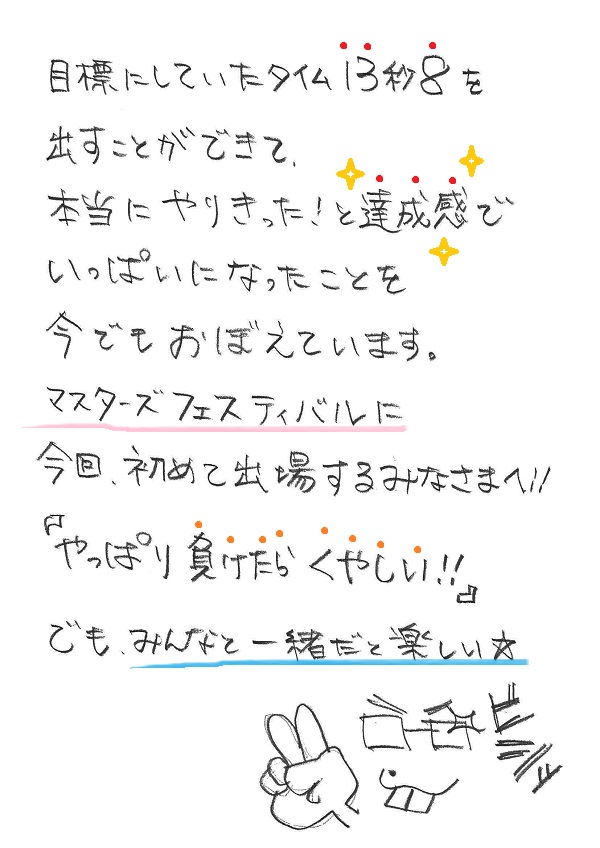 目標にしていたタイム13秒8を
出すことができて、
本当にやりきった!と達成感で
いっぱいになったことを
今でもおぼえています。
マスターズフェスティバルに
今回、初めて出場するみなさまへ!!
『やっぱり負けたらくやしい!!』
でも、みんなと一緒だと楽しい☆